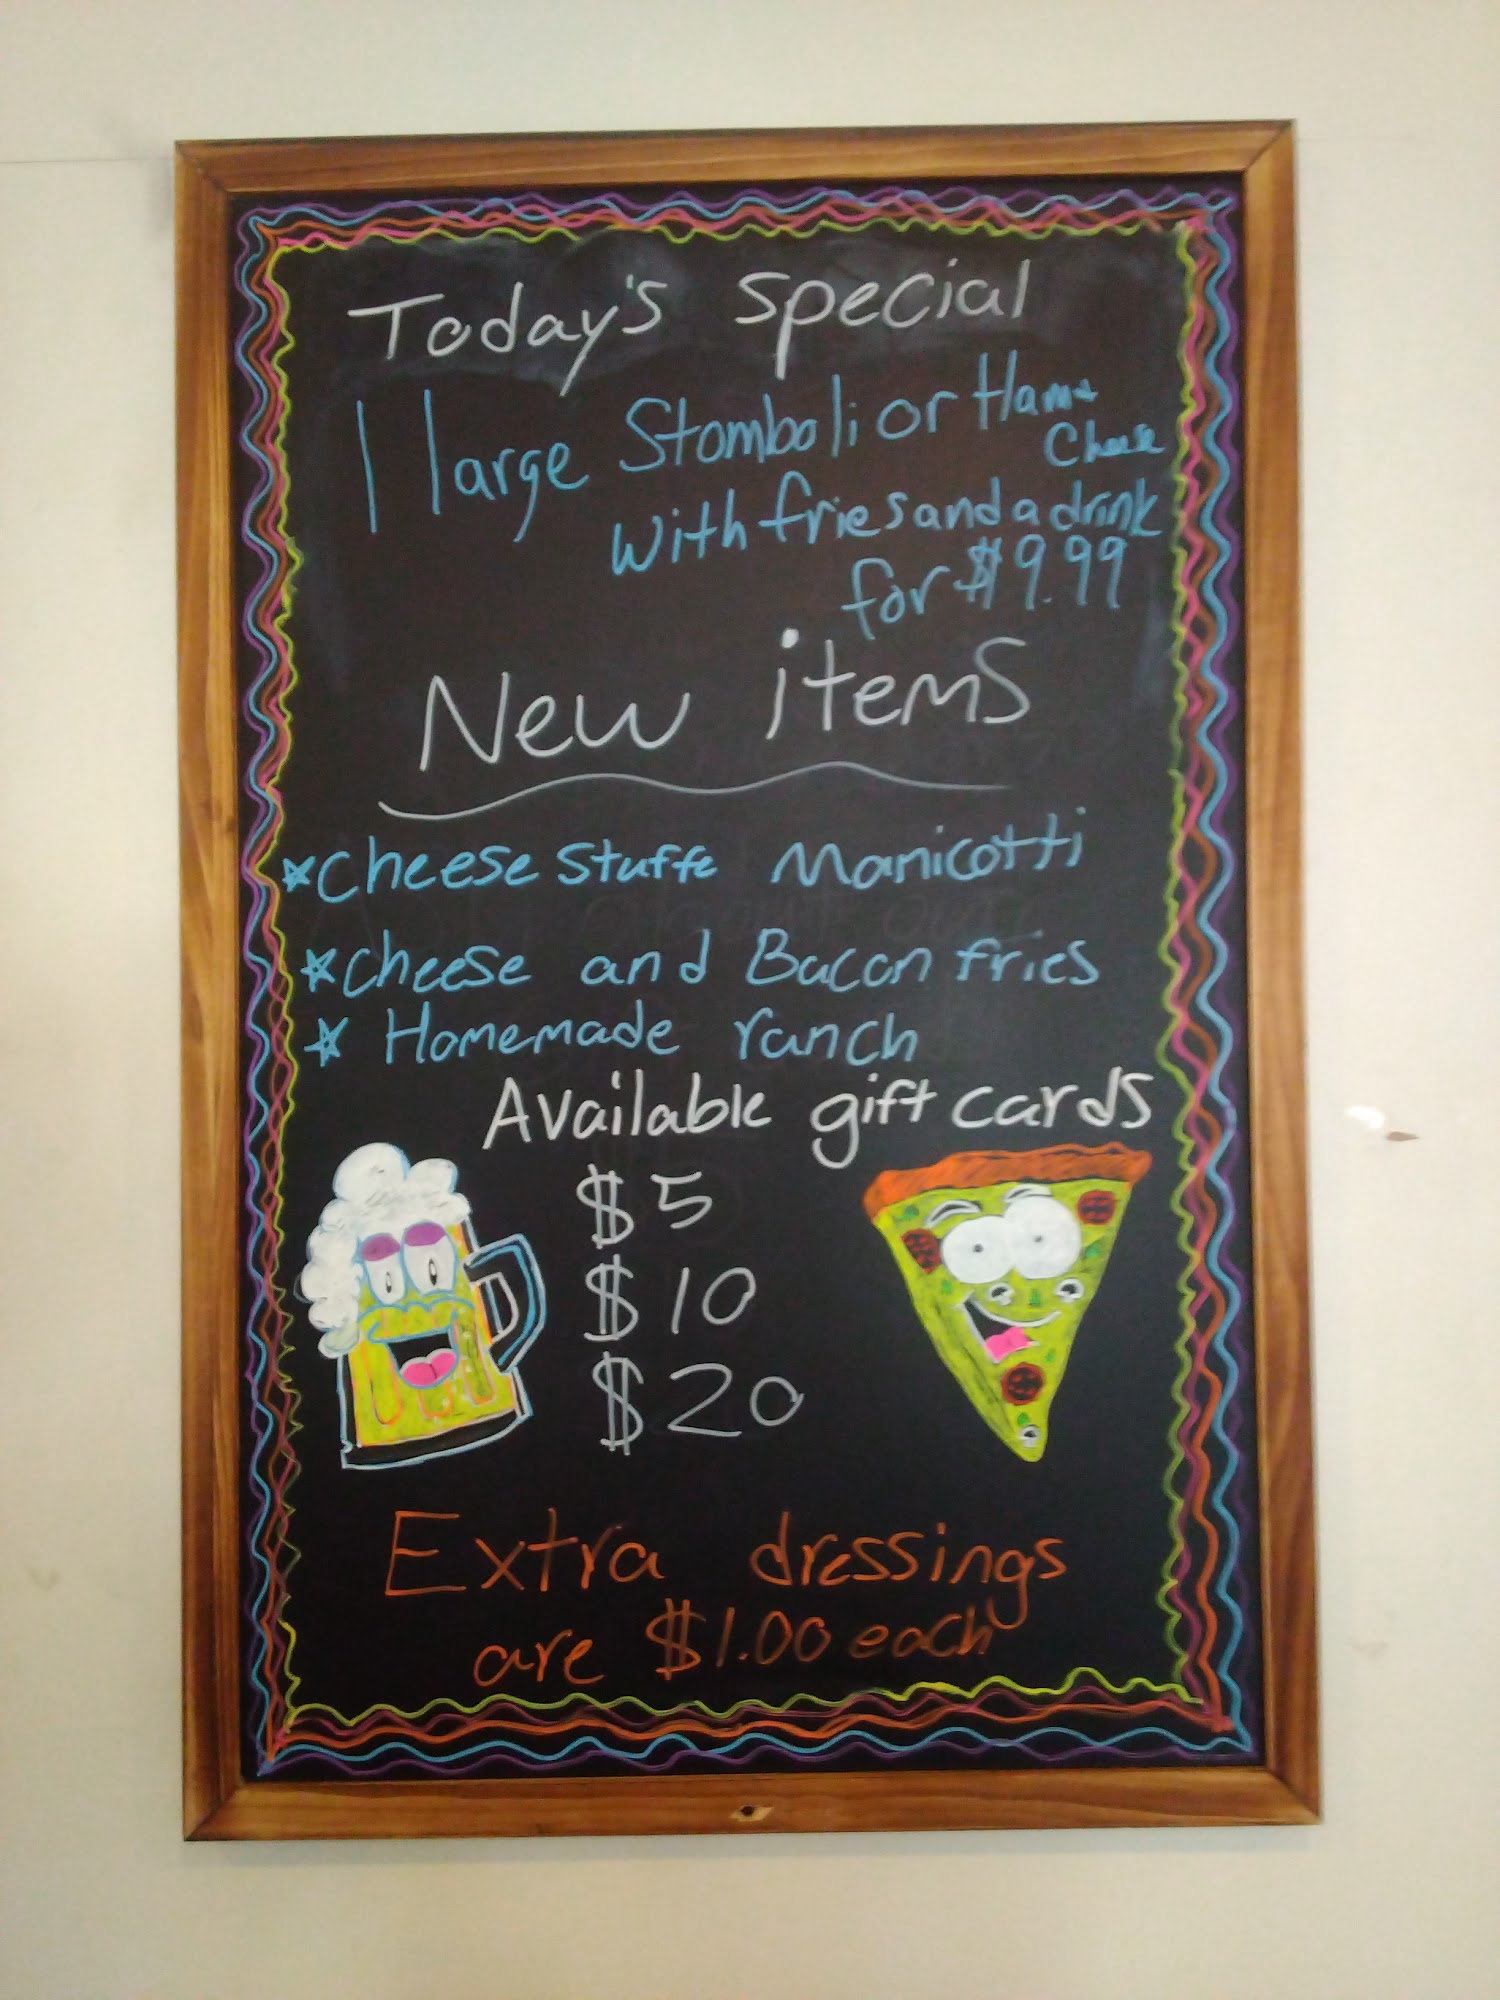 Today's special
1 large Stomboli or Ham &
Cheese
with fries and a drink
for $9.99
New items
*Cheese Stuffe Manicotti
*cheese and Bacon fries
* Homemade ranch
Available gift cards
$5
$10
$20
Extra dressings
are $1.00 each